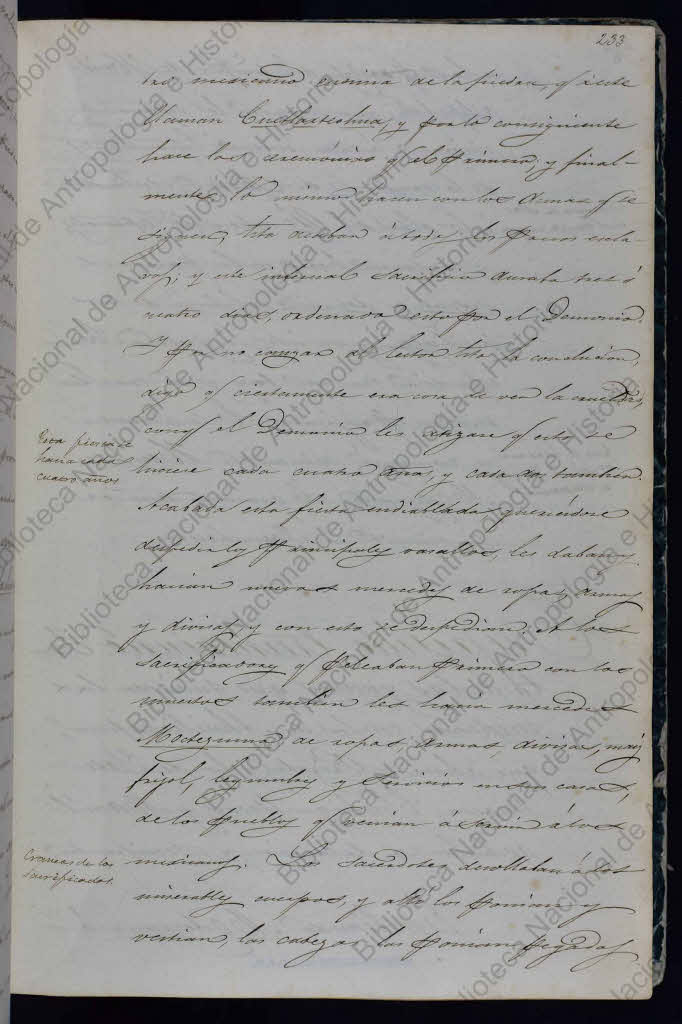 233
tro mexicano encima de la piedra, y á este
llaman Cuetlaxteohua, y por lo consiguiente
hace las ceremonias q. el primero; y final-
mente, lo mismo hacen con los demas q. se
siguen, hta acaban á todos los pasos escla-
vos; y este infernal sacrificio duraba tres ó
cuatro dias, ordenado esto por el Demonio.
Y por no cansar al lector hta la conclucion,
digo q. ciertamente era cosa de ver la crueldad
con q. el Demonio les atizare q. esto se
hiciese cada cuatro años, y cada año tambien.
Acabada esta fiesta endiablada queriendose
despedir los principales vasallos, les daban y
hacian nuevas mercedes de ropas, armas
y divisas, y con esto se despedian. A los
sacrificadores q. peleaban primero con los
muertos tambien les hacia mercedes
Moctezuma, de ropas, armas, divisas, maiz
frijol, legumbres y servicios en sus casas,
de los pueblos q. venian á servir á los
mexicanos. Los sacerdotes desollaban á los
miserables cuerpos, y allí los ponian y
vestian, las cabezas las ponian pegadas
Esta fiesta se
hacia cada
cuatro años
Craneos de los
sacrificados.
Biblioteca Nacional de Antropología e Historia